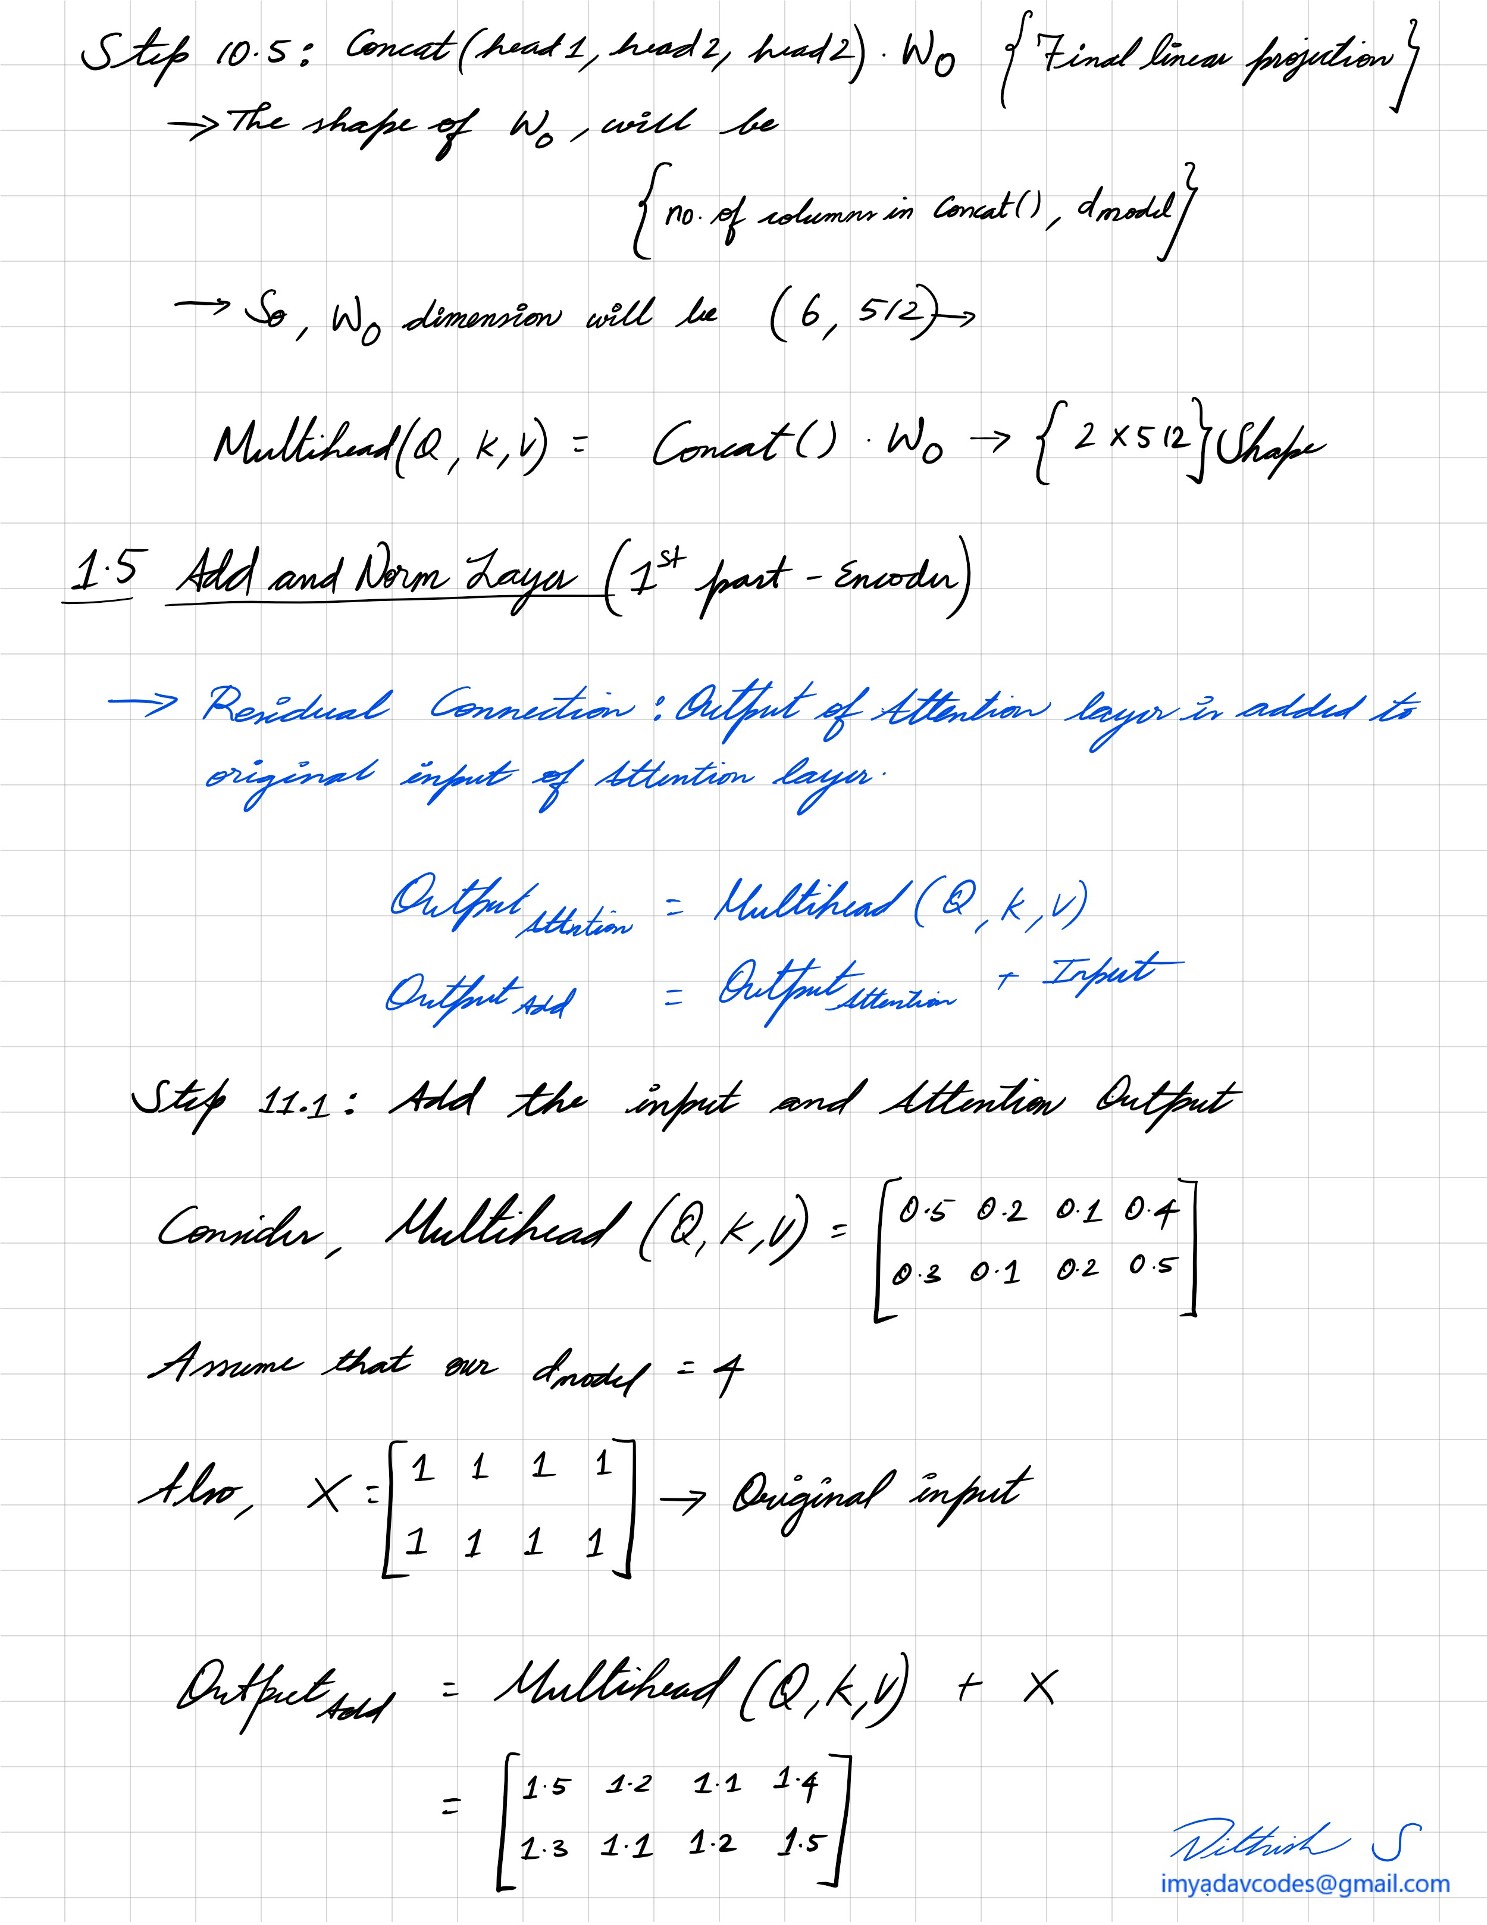 Step 10.5: Concat(head1, head2, head2) . W₀ {Final linear projection}
→ The shape of W₀, will be
{no. of columns in Concat(), dmodel}
→ So, W₀ dimension will be (6, 512) →
Multihead(Q, K, V) = Concat() . W₀ → {2×512} Shape
1.5 Add and Norm Layer (1st part - Encoder)
→ Residual Connection: Output of Attention layer is added to
original input of Attention layer.
Output Attention = Multihead (Q, K, V)
Output Add = Output Attention + Input
Step 11.1: Add the input and Attention Output
Consider, Multihead (Q, K, V) = [0.5 0.2 0.1 0.4
0.3 0.1 0.2 0.5]
Assume that our dmodel = 4
Also, X = [1 1 1 1
1 1 1 1] → Original input
Output Add = Multihead (Q, K, V) + X
= [1.5 1.2 1.1 1.4
1.3 1.1 1.2 1.5]
Dithish S
imyadavcodes@gmail.com